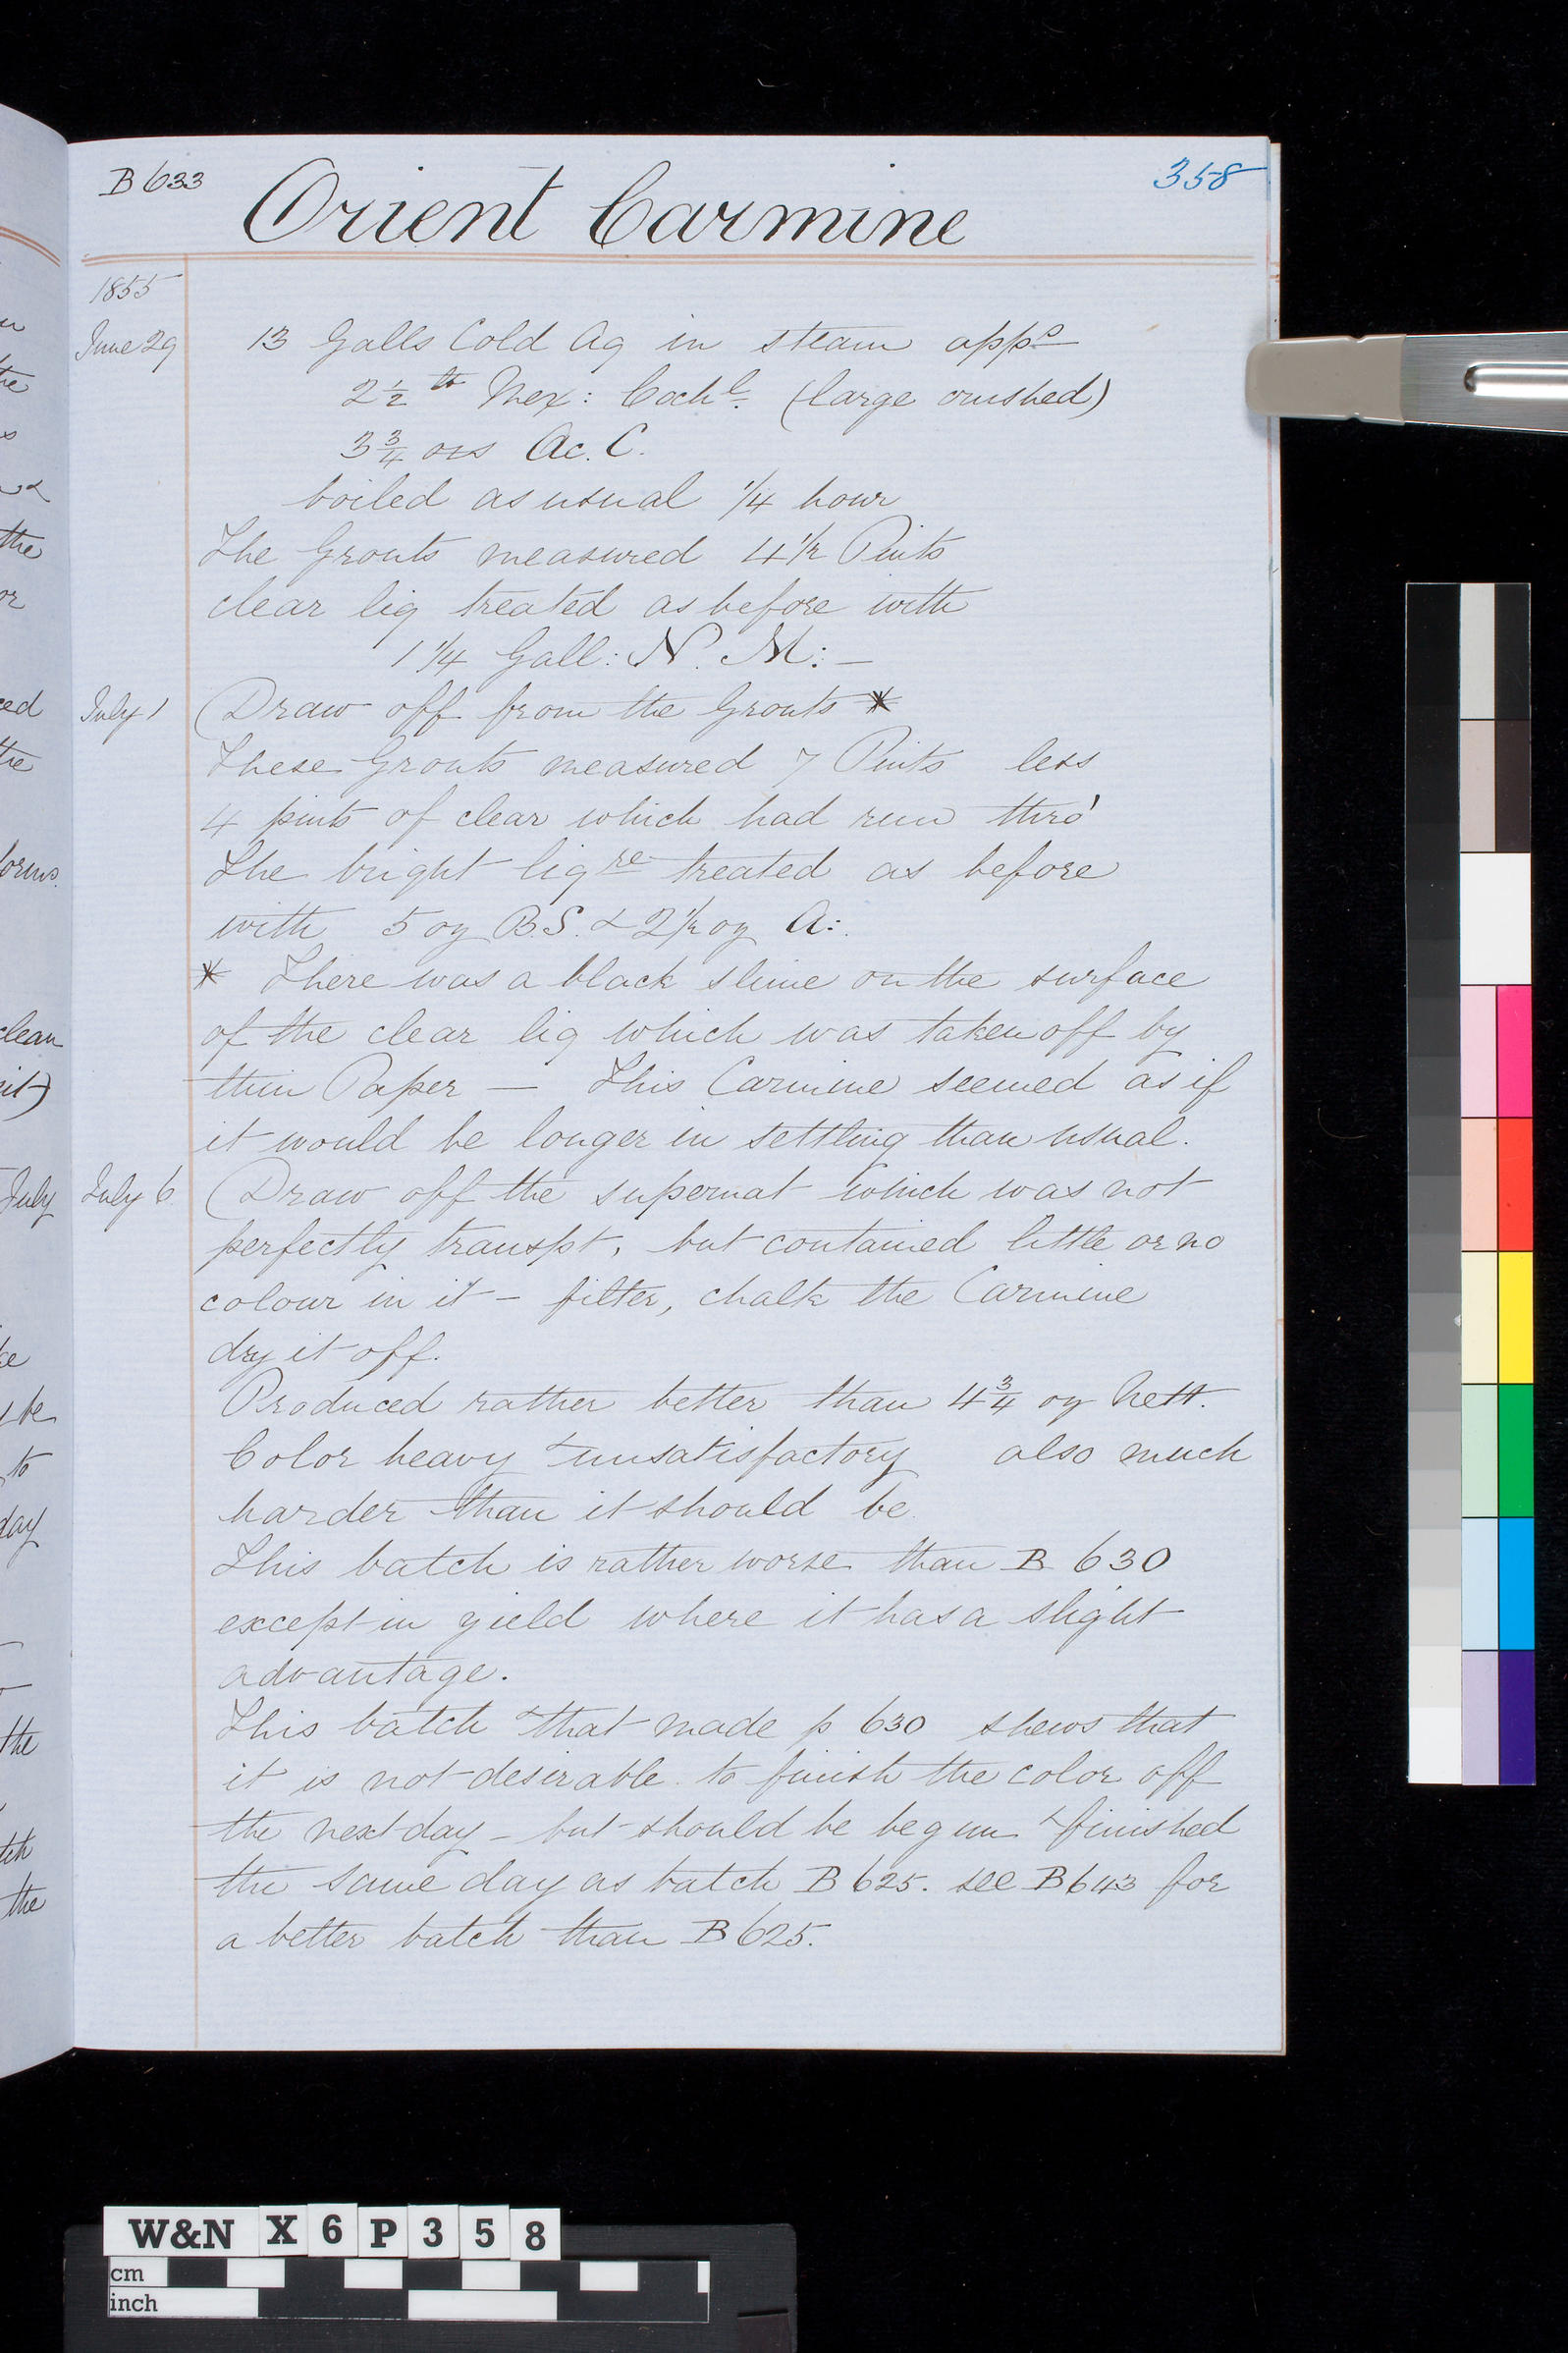 B 633
358
Orient Carmine
1855
June 29 13 Galls Cold Aq in steam app^s
2 1/2 lb Mex: Coch^l. (large crushed)
3 3/4 ozs Ac. C.
boiled as usual 1/4 hour
The Grouts measured 4 1/2 Pints
clear liq treated as before with
1 1/4 Gall: N. M: –
July 1 Draw off from the Grouts *
These Grouts measured 7 Pints less
4 pints of clear which had run thro'
The bright liq^re treated as before
with 5 oz B.S. & 2 1/2 oz A:.
* There was a black slime on the surface
of the clear liq which was taken off by
thin Paper — This Carmine seemed as if
it would be longer in settling than usual.
July 6 Draw off the supernat which was not
perfectly transpt, but contained little or no
colour in it – filter, chalk the Carmine
dry it off.
Produced rather better than 4 3/4 oz Nett.
Color heavy & unsatisfactory also much
harder than it should be.
This batch is rather worse than B 630
except in yield where it has a slight
advantage.
This batch & that made p 630 shews that
it is not desirable to finish the color off
the next day – but should be begun & finished
the same day as batch B 625. see B 643 for
a better batch than B 625.
the
or
ced
the
clean
July
be
to
day
the
the
W&N X 6 P 3 5 8
cm
inch